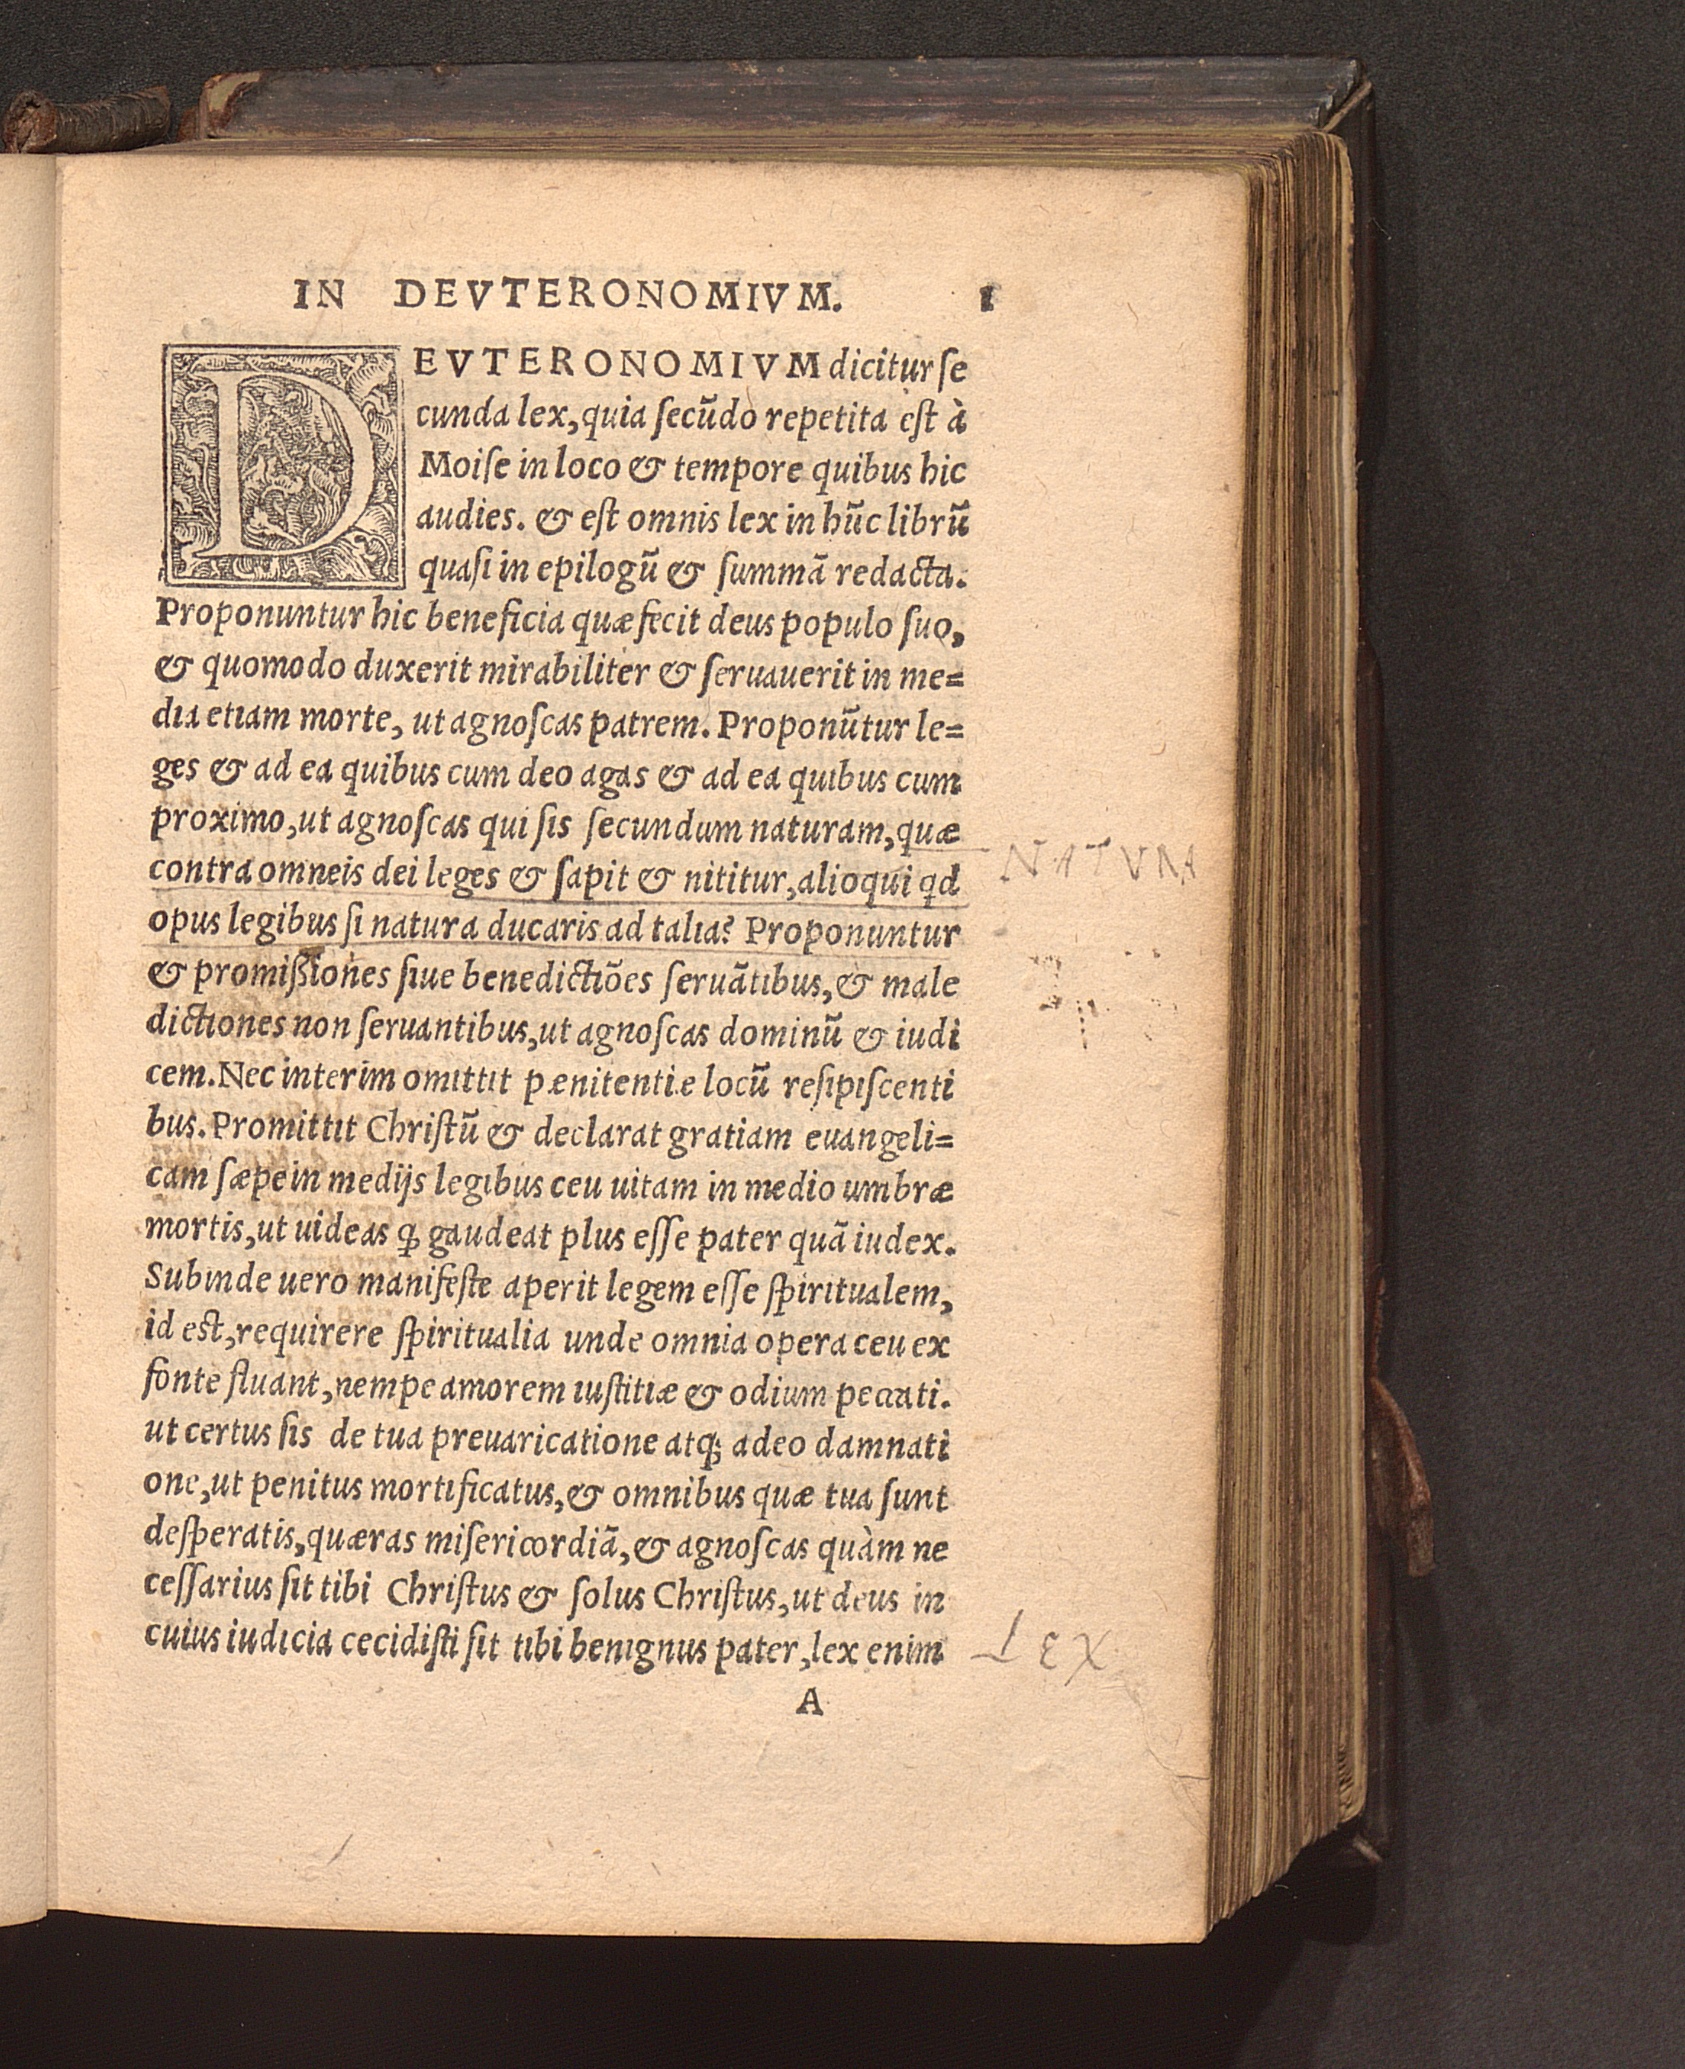 IN DEVTERONOMIVM. 1
DEVTERONOMIVM dicitur ſe
cunda lex, quia ſecũdo repetita eſt à
Moiſe in loco & tempore quibus hic
audies. & eſt omnis lex in hũc librũ
quaſi in epilogũ & ſummã redacta.
Proponuntur hic beneficia quæ fecit deus populo ſuo,
& quomodo duxerit mirabiliter & ſeruauerit in me=
dia etiam morte, ut agnoſcas patrem. Proponũtur le=
ges & ad ea quibus cum deo agas & ad ea quibus cum
proximo, ut agnoſcas qui ſis ſecundum naturam, quæ
NATVRA
contra omneis dei leges & ſapit & nititur, alioqui qd
opus legibus ſi natura ducaris ad talia? Proponuntur
& promißiones ſiue benedictiões ſeruãtibus, & male
dictiones non ſeruantibus, ut agnoſcas dominũ & iudi
cem. Nec interim omittit pænitentiæ locũ reſipiſcenti
bus. Promittit Chriſtũ & declarat gratiam euangeli=
cam ſæpe in medijs legibus ceu uitam in medio umbræ
mortis, ut uideas ꝙ gaudeat plus eſſe pater quã iudex.
Subinde uero manifeſte aperit legem eſſe ſpiritualem,
id est, requirere ſpiritualia unde omnia opera ceu ex
fonte fluant, nempe amorem iuſtitiæ & odium peccati.
ut certus ſis de tua preuaricatione atq; adeo damnati
one, ut penitus mortificatus, & omnibus quæ tua ſunt
deſperatis, quæras miſericordiã, & agnoſcas quàm ne
ceſſarius ſit tibi Chriſtus & ſolus Chriſtus, ut deus in
cuius iudicia cecidiſti ſit tibi benignus pater, lex enim
LEX
A